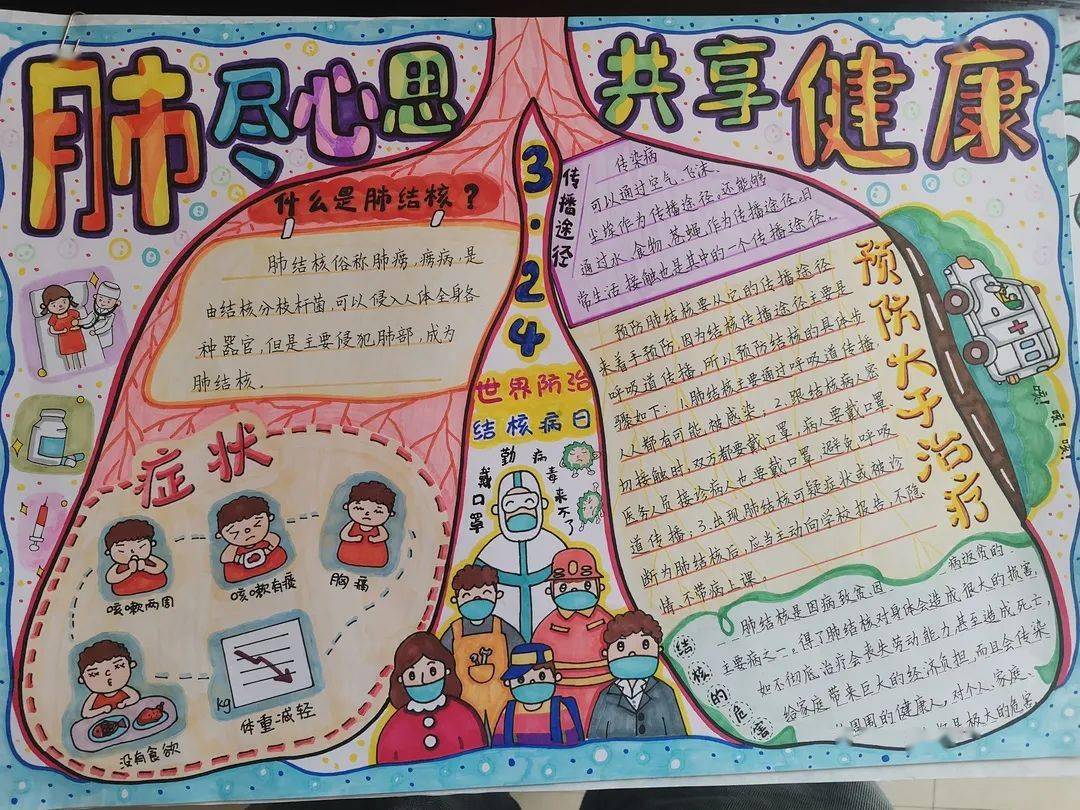 肺尽心思 共享健康
什么是肺结核？
肺结核俗称肺痨，痨病，是
由结核分枝杆菌，可以侵入人体全身各
种器官，但是主要侵犯肺部，成为
肺结核．
3.24
世界防治
结核病日
勤戴口罩
病毒来不了
传播途径
传染病
可以通过空气、飞沫、
尘埃作为传播途径，还能够
通过水、食物、苍蝇，作为传播途径，日
常生活接触也是其中的一个传播途径．
预防大于治疗
预防肺结核要从它的传播途径
来着手预防，因为结核传播途径主要是
呼吸道传播，所以预防结核的具体步
骤如下：1.肺结核主要通过呼吸道传播，
人人都有可能被感染；2.跟结核病人密
切接触时，双方都要戴口罩，病人要戴口罩
医务人员接诊病人也要戴口罩，避免呼吸
道传播；3.出现肺结核可疑症状或被诊
断为肺结核后，应当主动向学校报告，不隐
情、不带病上课
咳！咳！咳！
症状
咳嗽两周
咳嗽有痰
胸痛
没有食欲
kg
体重减轻
结核的危害
肺结核是因病致贫因病返贫的
主要病之一。得了肺结核对身体会造成很大的损害，
如不彻底治疗会丧失劳动能力甚至造成死亡，
给家庭带来巨大的经济负担，而且会传染
周围的健康人，对个人、家庭、
极大的危害